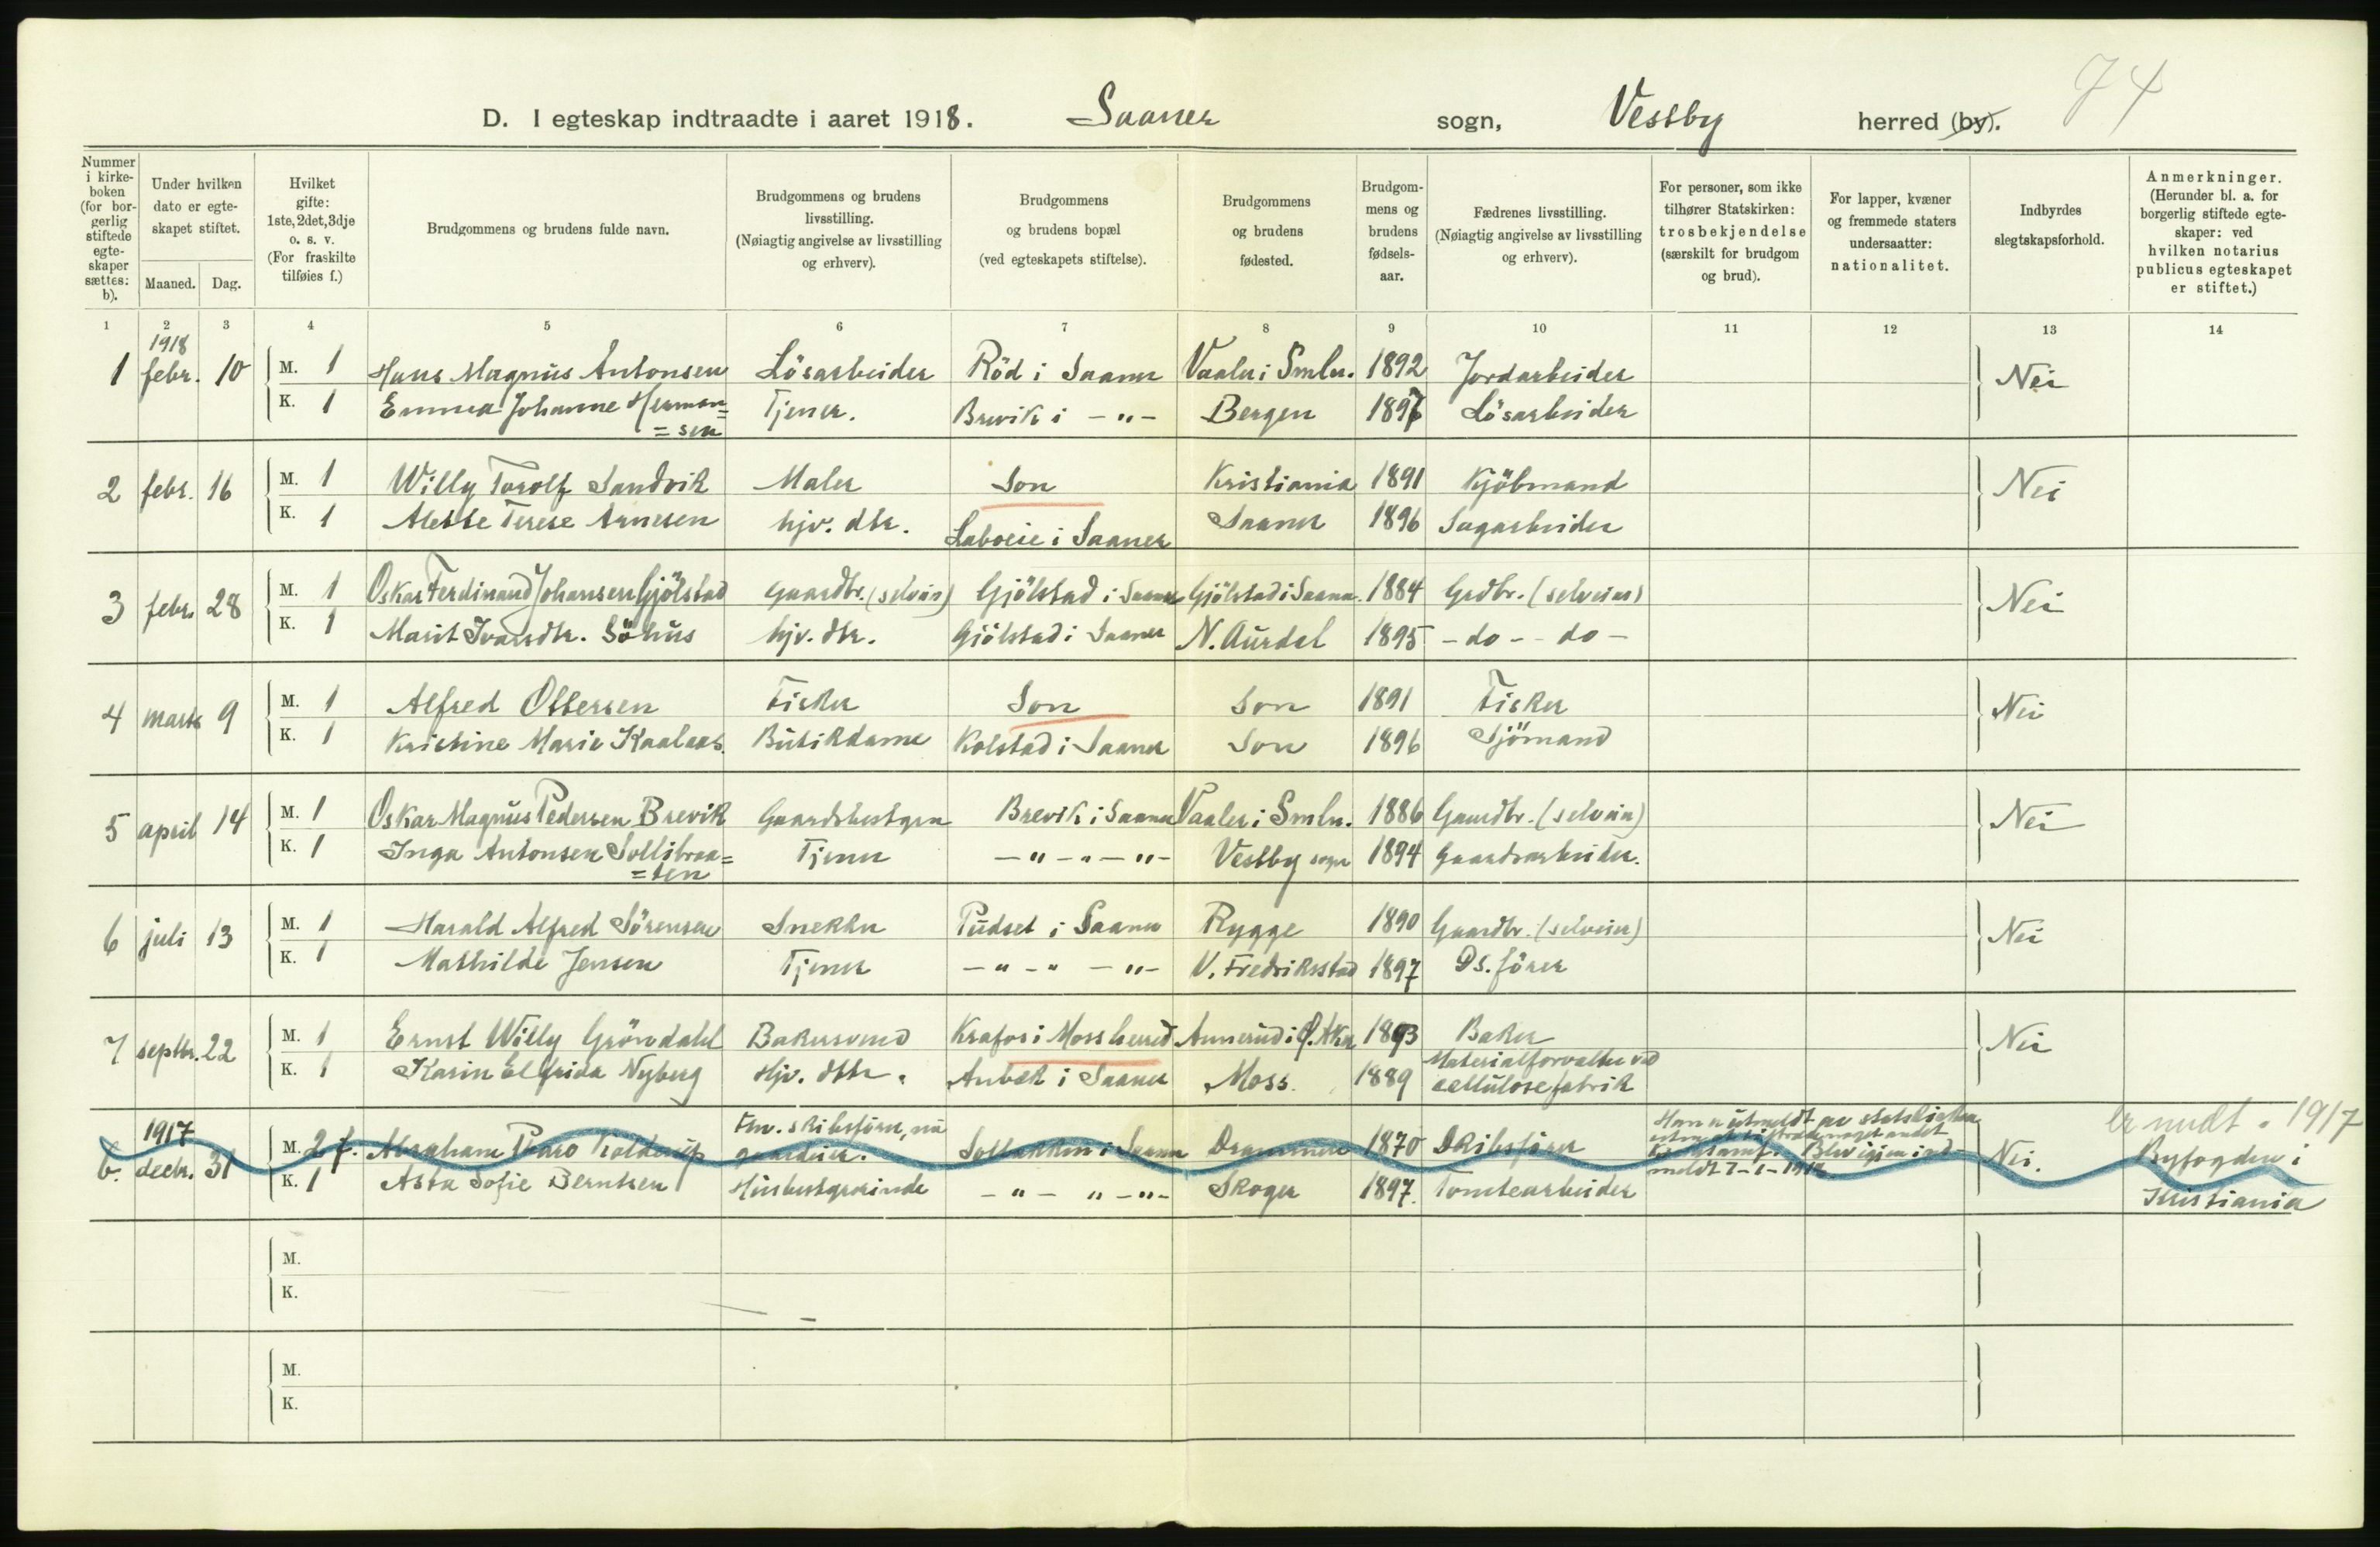 74
D. I egteskap indtraadte i aaret 1918. Saaner sogn, Vestby herred (by).
Nummer i kirkeboken (for borgerlig stiftede egteskaper sættes: b).
Under hvilken dato er egteskapet stiftet.
Maaned. Dag.
Hvilket gifte: 1ste, 2det, 3dje o. s. v. (For fraskilte tilføies f.)
Brudgommens og brudens fulde navn.
Brudgommens og brudens livsstilling. (Nøiagtig angivelse av livsstilling og erhverv).
Brudgommens og brudens bopæl (ved egteskapets stiftelse).
Brudgommens og brudens fødested.
Brudgommens og brudens fødselsaar.
Fædrenes livsstilling. (Nøiagtig angivelse av livsstilling og erhverv).
For personer, som ikke tilhører Statskirken: trosbekjendelse (særskilt for brudgom og brud).
For lapper, kvæner og fremmede staters undersaatter: nationalitet.
Indbyrdes slegtskapsforhold.
Anmerkninger. (Herunder bl. a. for borgerlig stiftede egteskaper: ved hvilken notarius publicus egteskapet er stiftet.)
1 2 3 4 5 6 7 8 9 10 11 12 13 14
1918
1 febr. 10 M. 1 Hans Magnus Antonsen Lösarbeider Röd i Saaner Vaaler i Smln. 1892 Jordarbeider Nei
K. 1 Emma Johanne Herman= Tjener. Brevik i -"- Bergen 1897 Lösarbeider
=sen
2 febr. 16 M. 1 Willy Torolf Sandvik Maler Son Kristiania 1891 Kjöbmand Nei
K. 1 Alette Terese Arnesen hjv. dtr. Laboeie i Saaner Saaner 1896 Sagarbeider
3 febr. 28 M. 1 Oskar Ferdinand Johansen Gjölstad Gaardbr. (selveier) Gjölstad i Saaner Gjölstad i Saaner. 1884 Grdbr. (selveier) Nei
K. 1 Marit Ivarsdtr. Söhus hjv. dtr. Gjölstad i Saaner N. Aurdal 1895 - do - - do -
4 marts 9 M. 1 Alfred Ottersen Fisker Son Son 1891 Fisker Nei
K. 1 Kristine Marie Kaalaas. Butikdame Kolstad i Saaner Son 1896 Sjömand
5 april 14 M. 1 Oskar Magnus Pedersen Brevik Gaardsbestyrer Brevik i Saaner Vaaler i Smln. 1886 Gaardbr. (selveier) Nei
K. 1 Inga Antonsen Sollibraa= Tjener -"-"-"- Vestby sogn 1894 Gaardsarbeider.
=ten
6 juli 13 M. 1 Harald Alfred Sörensen Snekker Pudset i Saaner Rygge 1890 Gaardbr. (selveier) Nei
K. 1 Mathilde Jensen Tjener -"-"-"- V. Fredriksstad 1897 Ds. förer
7 septbr. 22 M. 1 Ernst Willy Gröndahl Bakersvend Krafos i Mossherred Annerud i Ø. Aker 1893 Baker Nei
K. 1 Karin Elfrida Nyberg Hjv. dtr. Anbæk i Saaner Moss. 1889 Materialforvalter ved
cellulosefabrik
1917 Fhv. skibsförer, nu Han er utmeldt av statskirken er medt. 1917
b. decbr. 31 M. 2 f. Abraham gaardeier. Solbakken i Saaner Drammen 1870 Skibsförer Blev igjen ind- Nei. Byfogden i
meldt 7-1-1918
K. 1 Asta Sofie Berntsen Husbestyrerinde -"- "-"- Skoger 1897. Tomtearbeider Kristiania
M.
K.
M.
K.